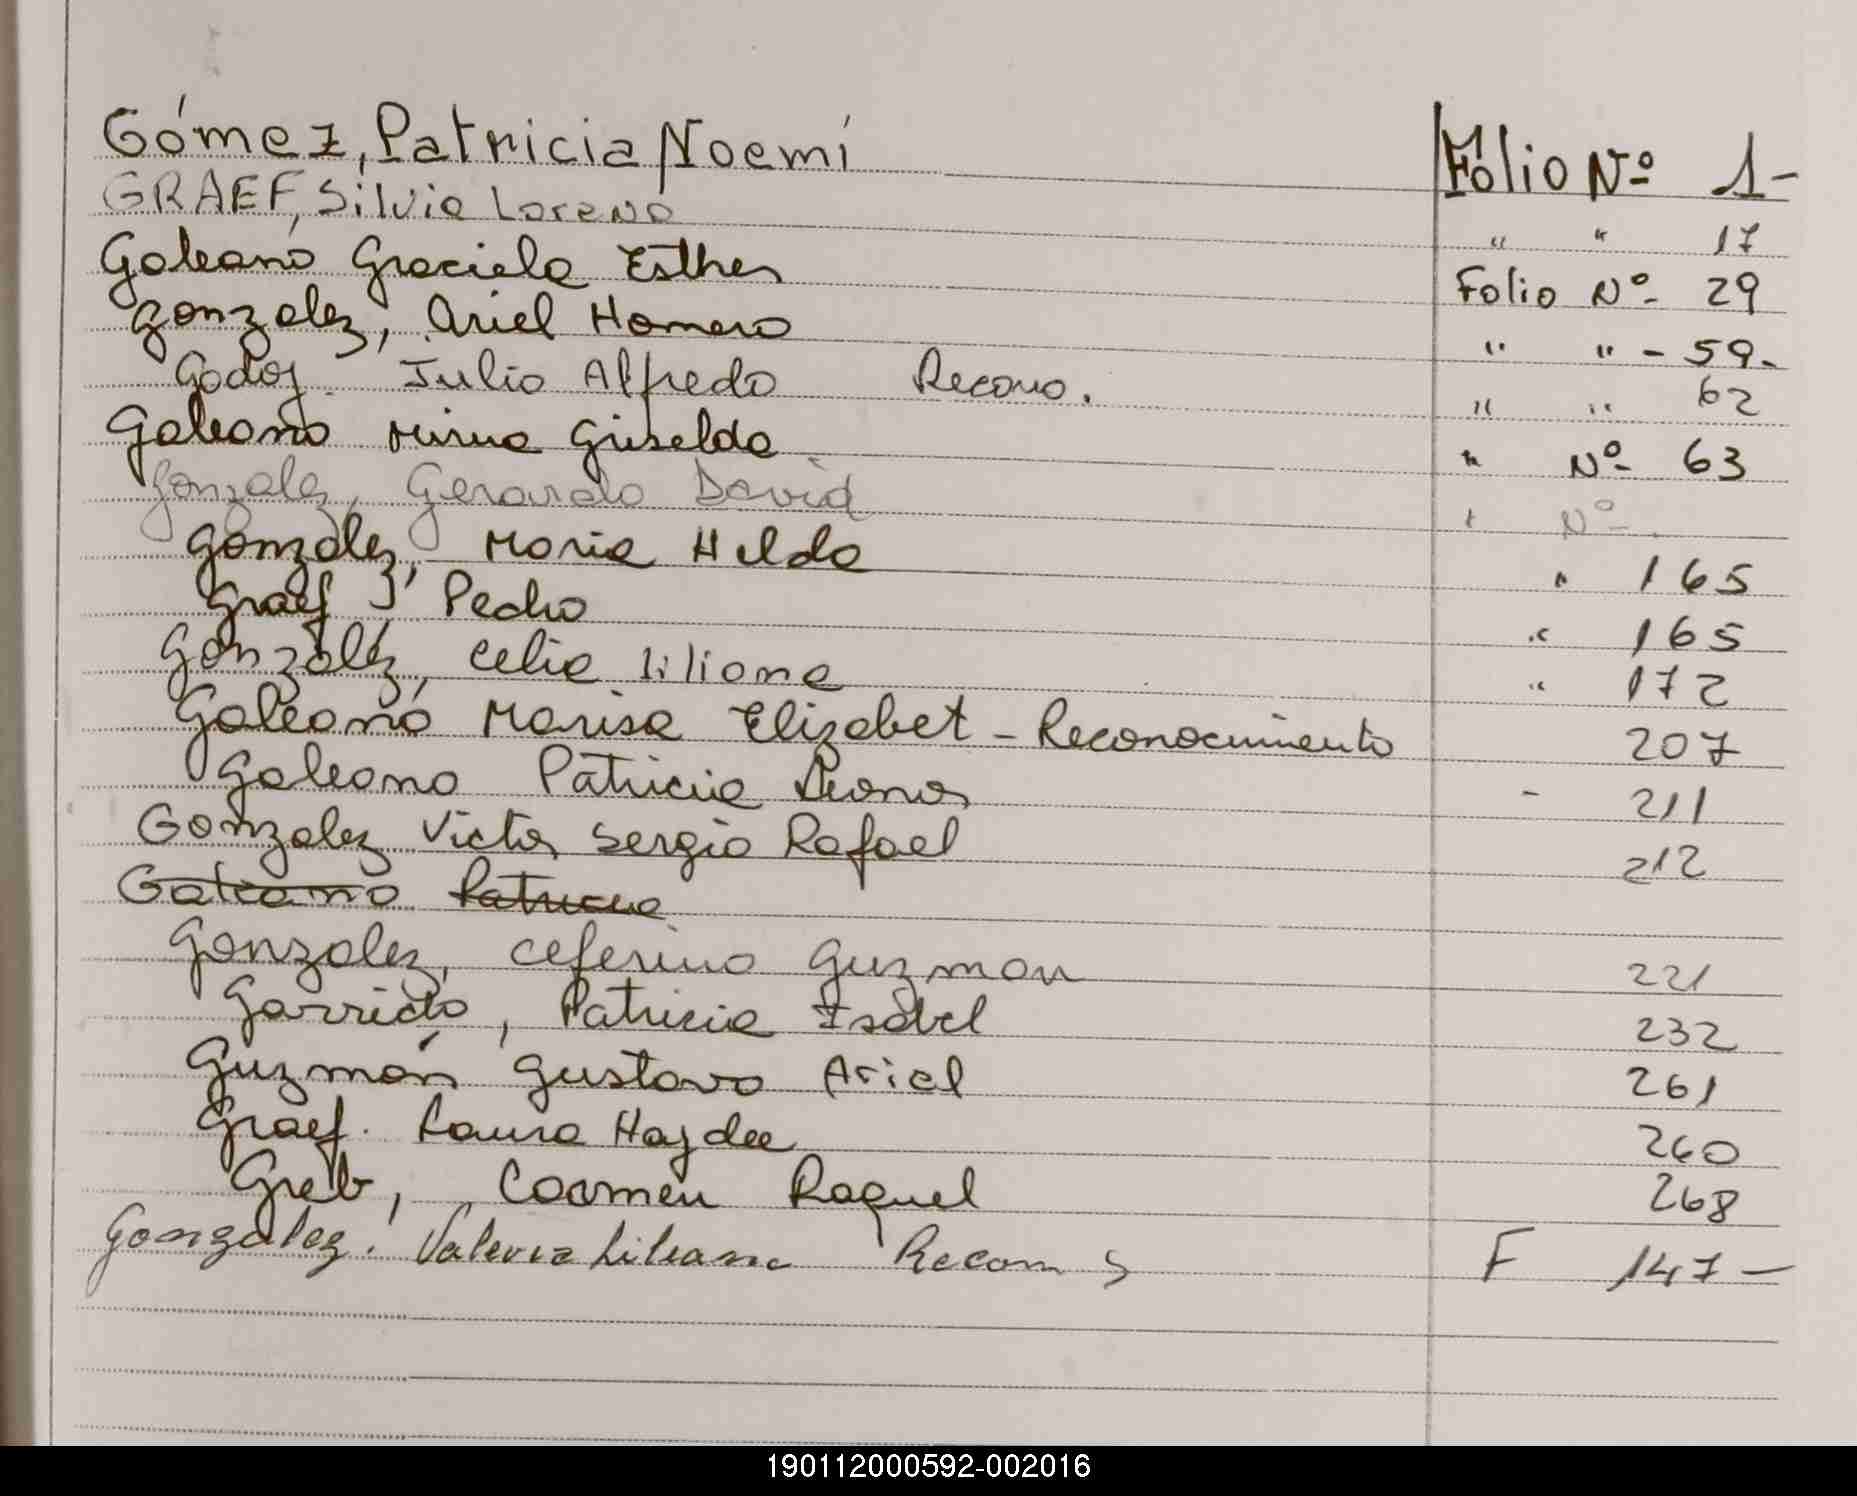 Gómez, Patricia Noemí Folio Nº 1-
GRAEF, Silvia Lorena " " 17
Galeano Graciela Esther Folio Nº 29
Gonzalez, Ariel Homero " " - 59-
Godoy Julio Alfredo Recono. " " 62
Galeano Mirna Griselda " Nº 63
Gonzalez, Gerardo David " Nº
Gonzalez, Maria Hilda " 165
Graef, Pedro " 165
González, Celia Liliana " 172
Galeano Marisa Elizabet - Reconocimiento 207
Galeano Patricia Leonor - 211
Gonzalez Victor Sergio Rafael 212
Galeano Patricia
Gonzalez, Ceferino Guzman 221
Garrido, Patricia Isabel 232
Guzmán Gustavo Ariel 261
Graef. Laura Haydee 260
Greb, Carmen Raquel 268
Gonzalez. Valeria Liliana Recom F 147-
190112000592-002016